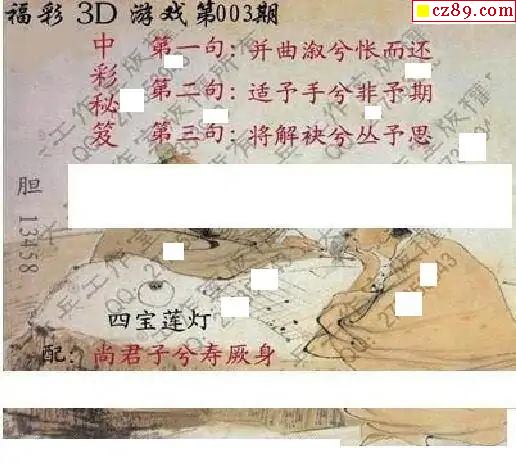 cz89.com
福彩 3D 游戏第003期
中彩秘笈
第一句:并曲溆兮怅而还
第二句:适予手兮非予期
第三句:将解袂兮丛予思
胆 13458
四宝莲灯
配:尚君子兮寿厥身